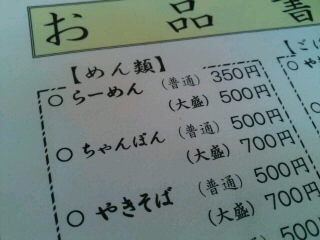 お品書
【めん類】
○らーめん (普通) 350円
(大盛) 500円
○ちゃんぽん (普通) 500円
(大盛) 700円
○やきそば (普通) 500円
(大盛) 700円
500円
【ごは
○